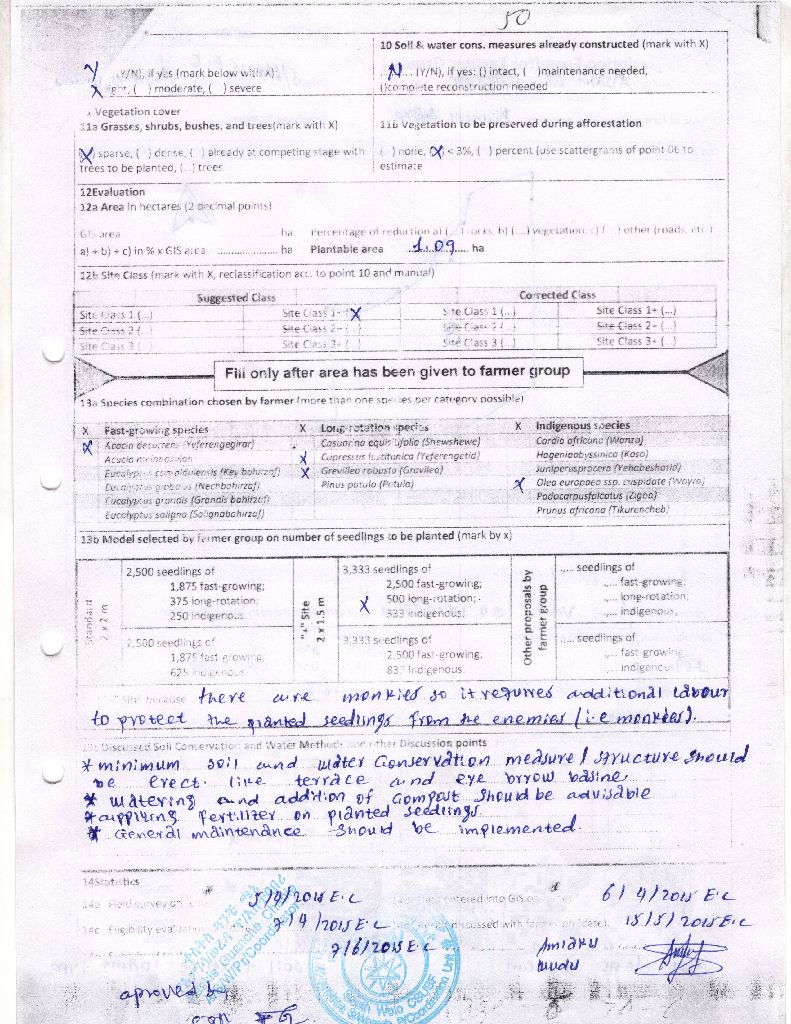 50
10 Soil & water cons. measures already constructed (mark with X)
Y (Y/N), if yes (mark below with X)
N (Y/N), if yes: () intact, ( )maintenance needed,
X light, ( ) moderate, ( ) severe
()complete reconstruction needed
Vegetation cover
11a Grasses, shrubs, bushes, and trees(mark with X)
11b Vegetation to be preserved during afforestation
(X) sparse, ( ) dense, ( ) already at competing stage with
( ) none, (X) < 3%, ( ) percent (use scattergrams of point 06 to
trees to be planted, (...) trees
estimate
12Evaluation
12a Area in hectares (2 decimal points)
GIS area ha Percentage of reduction a) (...) rocks, b) (....) vegetation, c) ( ) other (roads, etc.)
a) + b) + c) in % x GIS area .................... ha Plantable area ...1.09.... ha
12b Site Class (mark with X, reclassification acc. to point 10 and manual)
Suggested Class Corrected Class
Site Class 1 (...) Site Class 1+ (X Site Class 1 (...) Site Class 1+ (...)
Site Class 2 (...) Site Class 2+ ( ) Site Class 2 ( ) Site Class 2+ (...)
Site Class 3 ( ) Site Class 3+ ( ) Site Class 3 ( ) Site Class 3+ (...)
Fill only after area has been given to farmer group
13a Species combination chosen by farmer (more than one species per category possible)
X Fast-growing species X Long-rotation species X Indigenous species
X Acacia decurrens (Yeferengegirar) Casuarina equisitifolia (Shewshewe) Cordia africana (Wanza)
Acacia melanoxylon X Cupressus lusitanica (Yeferengetid) Hageniaabyssinica (Koso)
Eucalyptus camaldulensis (Key bahirzaf) X Grevillea robusta (Gravilea) Juniperusprocera (Yehabeshatid)
Eucalyptus globulus (Nechbahirzaf) Pinus patula (Patula) X Olea europaea ssp. cuspidate (Woyra)
Eucalyptus grandis (Grandis bahirzaf) Podocarpusfalcatus (Zigba)
Eucalyptus saligna (Salignabahirzaf) Prunus africana (Tikurencheb)
13b Model selected by farmer group on number of seedlings to be planted (mark by x)
Standard
2 x 2 m
2,500 seedlings of
1,875 fast-growing;
375 long-rotation;
250 indigenous
2,500 seedlings of
1,875 fast-growing;
625 indigenous
"+" Site
2 x 1.5 m
3,333 seedlings of
2,500 fast-growing;
X 500 long-rotation;
333 indigenous
3,333 seedlings of
2,500 fast-growing;
833 indigenous
Other proposals by
farmer group
..... seedlings of
..... fast-growing;
..... long-rotation,
..... indigenous,
..... seedlings of
..... fast-growing
..... indigenous
Site because there are monkies so it requires additional labour
to protect the planted seedlings from the enemies (i.e monkies).
13c Discussed Soil Conservation and Water Methods and other Discussion points
* minimum soil and water Conservation measure / structure should
be erect. like terrace and eye brow basine
* watering and addition of Compost should be advisable
* applying fertilizer on planted seedlings
* General maintenance should be implemented.
14Statistics
14a Field survey on 5/4/2015 E.C entered into GIS on 6/4/2015 E.C
14c Eligibility evaluat 7/4/2015 E.C discussed with farmer (date) 15/5/2015 E.C
7/6/2015 E.C
aproved by